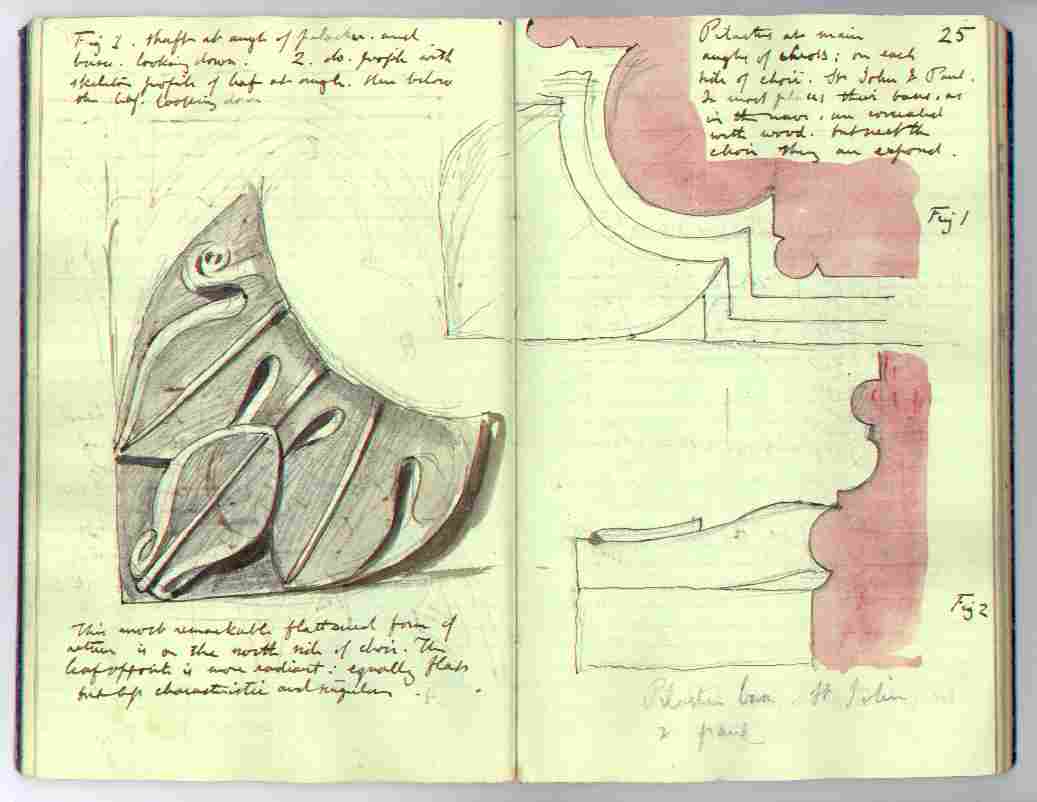 Fig 1. shaft at angle of pilaster. and
base. looking down. 2. do. profile with
skeleton profile of leaf at angle. Then below
the leaf. looping down
This most remarkable flattened form of
return is on the north side of choir. The
leaf opposite is more radiant: equally flat
but less characteristic and singular.
Pilasters at main
angles of cross; on each
side of choir. St John & Paul.
In most places their bases. as
in the nave. are concealed
with wood. but next the
choir they are exposed.
25
Fig 1
Fig 2
Pilaster base St John
& paul